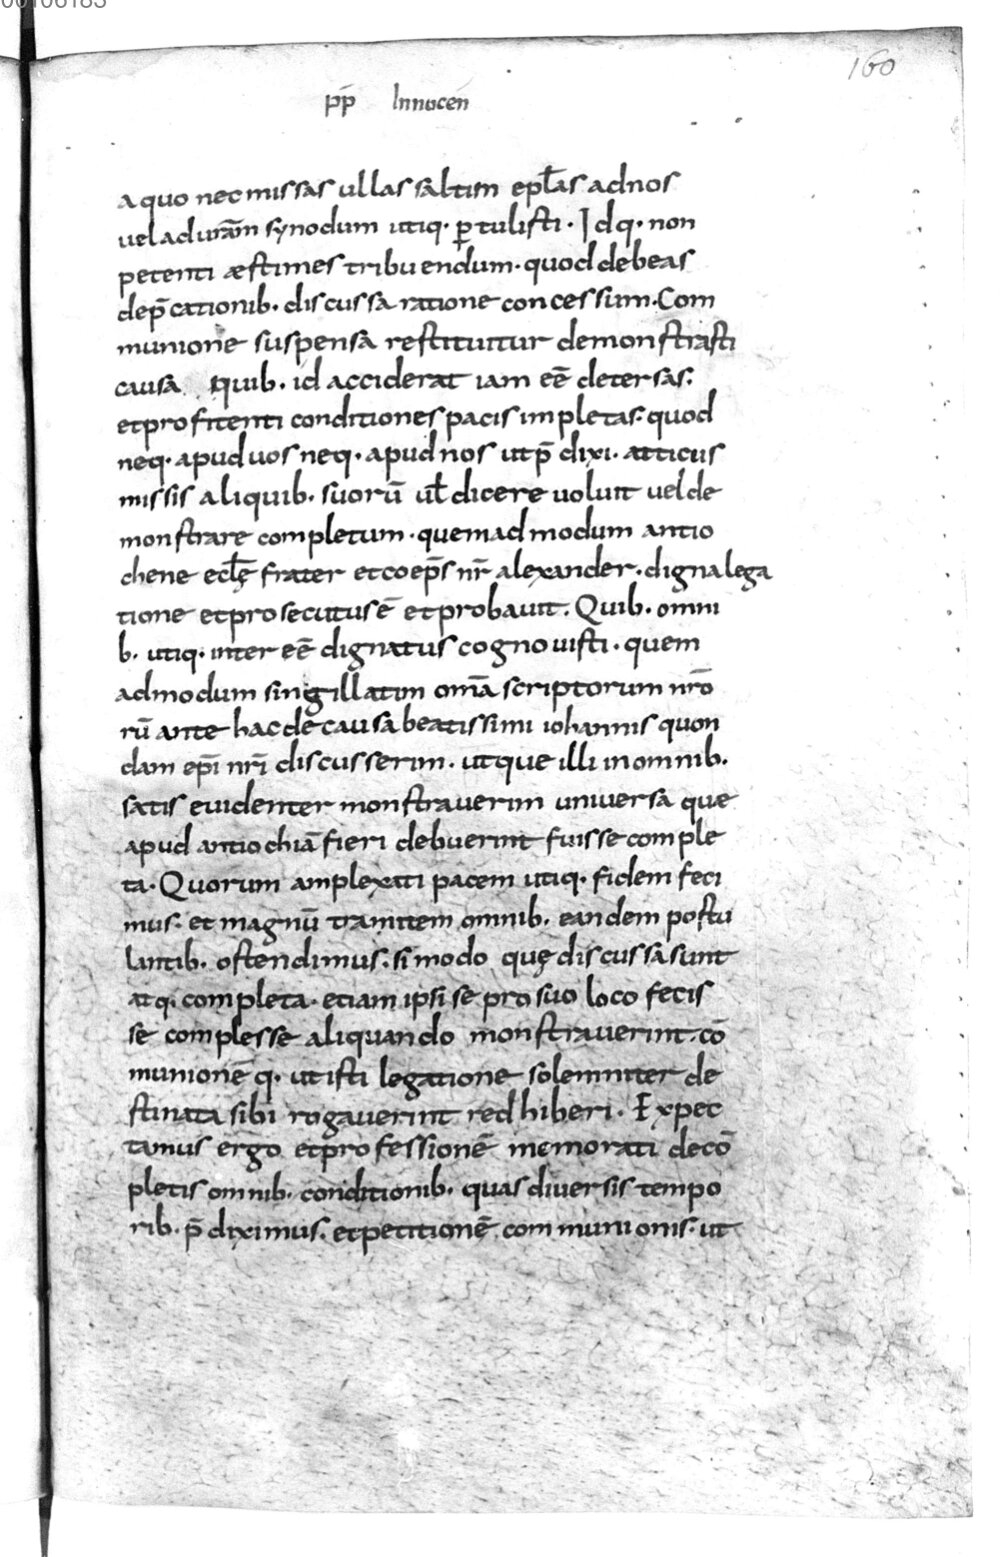 00106183
160
pp̄ Innocen̄
a quo nec missas ullas saltim epl̄as ad nos
vel ad vr̄am synodum utiq· p̱ tulisti· Idq· non
petenti æstimes tribuendum· quod debeas
dep̄cationib· discussa ratione concessum· Com
munione suspensa restituitur demonstrasti
causa quib· id acciderat iam eē detersas·
et profitenti conditiones pacis impletas· quod
neq· apud uos neq· apud nos ut p̄ dixi· atticus
missis aliquib· suorū ul̄ dicere uoluit uel de
monstrare completum· quemadmodum antio
chene ecl̄ę frater et coep̄s nr̄ alexander· digna lega
tione et prosecutus ē et probauit· Quib· omni
b· utiq· inter eē dignatus cognouisti· quem
admodum singillatim omā scriptorum nr̄o
rū ante hac de causa beatissimi iohannis quon
dam ep̄i nr̄i discusserim· utque illi in omnib·
satis euidenter monstrauerim uniuersa que
apud antiochiā fieri debuerint fuisse comple
ta· Quorum amplexati pacem utiq· fidem feci
mus· et magnū tramitem omnib· eandem postu
lantib· ostendimus· si modo quę discussa sunt
atq· completa· etiam ipsi se pro suo loco fecis
se complesse aliquando monstrauerint· cō
munionē q· ut isti legatione solemniter de
stinata sibi rogauerint redhiberi· Expec
tamus ergo et professionē memorati de cō
pletis omnib· conditionib· quas diuersis tempo
rib· p̄ diximus· et petitionē communionis· ut